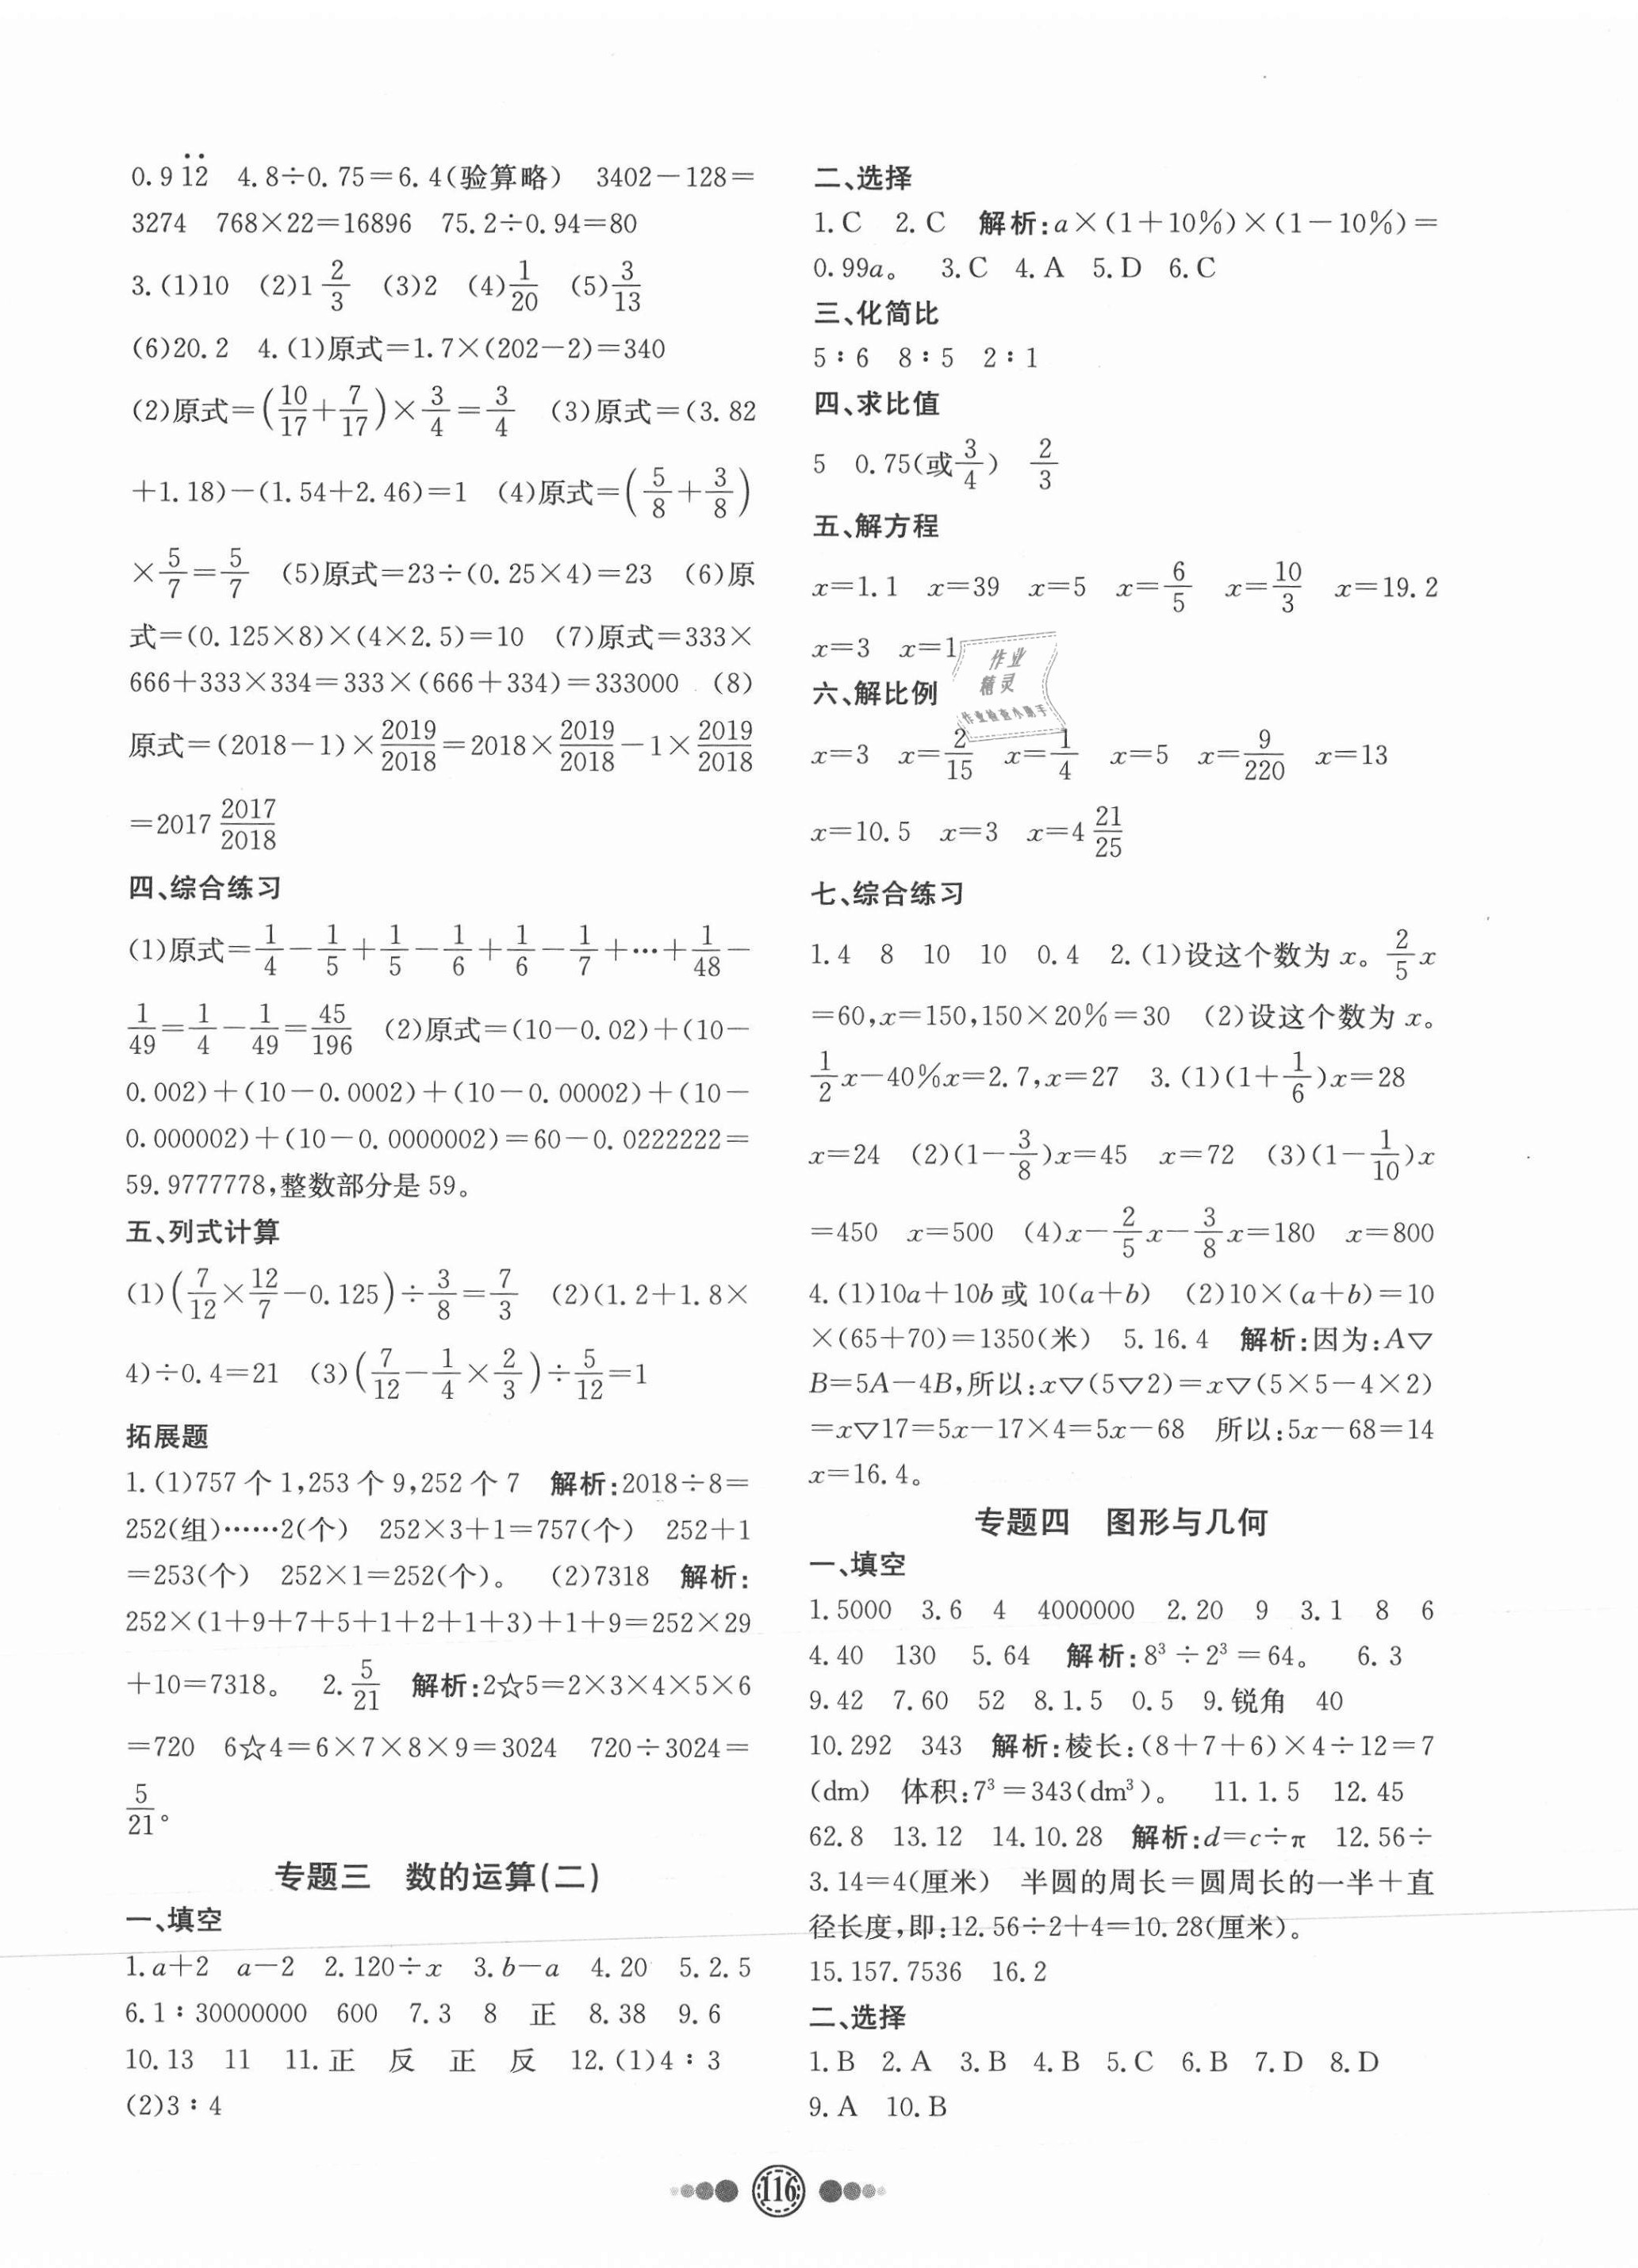 0.9 1̇2̇ 4.8÷0.75=6.4(验算略) 3402-128=
3274 768×22=16896 75.2÷0.94=80
3.(1)10 (2)1 2/3 (3)2 (4)1/20 (5)3/13
(6)20.2 4.(1)原式=1.7×(202-2)=340
(2)原式=(10/17+7/17)×3/4=3/4 (3)原式=(3.82
+1.18)-(1.54+2.46)=1 (4)原式=(5/8+3/8)
×5/7=5/7 (5)原式=23÷(0.25×4)=23 (6)原
式=(0.125×8)×(4×2.5)=10 (7)原式=333×
666+333×334=333×(666+334)=333000 (8)
原式=(2018-1)×2019/2018=2018×2019/2018-1×2019/2018
=2017 2017/2018
四、综合练习
(1)原式=1/4-1/5+1/5-1/6+1/6-1/7+…+1/48-
1/49=1/4-1/49=45/196 (2)原式=(10-0.02)+(10-
0.002)+(10-0.0002)+(10-0.00002)+(10-
0.000002)+(10-0.0000002)=60-0.0222222=
59.9777778,整数部分是 59。
五、列式计算
(1)(7/12×12/7-0.125)÷3/8=7/3 (2)(1.2+1.8×
4)÷0.4=21 (3)(7/12-1/4×2/3)÷5/12=1
拓展题
1.(1)757 个 1,253 个 9,252 个 7 解析:2018÷8=
252(组)……2(个) 252×3+1=757(个) 252+1
=253(个) 252×1=252(个)。 (2)7318 解析:
252×(1+9+7+5+1+2+1+3)+1+9=252×29
+10=7318。 2.5/21 解析:2☆5=2×3×4×5×6
=720 6☆4=6×7×8×9=3024 720÷3024=
5/21。
专题三 数的运算(二)
一、填空
1.a+2 a-2 2.120÷x 3.b-a 4.20 5.2.5
6.1∶30000000 600 7.3 8 正 8.38 9.6
10.13 11 11.正 反 正 反 12.(1)4∶3
(2)3∶4
二、选择
1.C 2.C 解析:a×(1+10%)×(1-10%)=
0.99a。 3.C 4.A 5.D 6.C
三、化简比
5∶6 8∶5 2∶1
四、求比值
5 0.75(或3/4) 2/3
五、解方程
x=1.1 x=39 x=5 x=6/5 x=10/3 x=19.2
x=3 x=1
作业
精灵
作业检查小助手
六、解比例
x=3 x=2/15 x=1/4 x=5 x=9/220 x=13
x=10.5 x=3 x=4 21/25
七、综合练习
1.4 8 10 10 0.4 2.(1)设这个数为 x。2/5x
=60,x=150,150×20%=30 (2)设这个数为 x。
1/2x-40%x=2.7,x=27 3.(1)(1+1/6)x=28
x=24 (2)(1-3/8)x=45 x=72 (3)(1-1/10)x
=450 x=500 (4)x-2/5x-3/8x=180 x=800
4.(1)10a+10b 或 10(a+b) (2)10×(a+b)=10
×(65+70)=1350(米) 5.16.4 解析:因为:A▽
B=5A-4B,所以:x▽(5▽2)=x▽(5×5-4×2)
=x▽17=5x-17×4=5x-68 所以:5x-68=14
x=16.4。
专题四 图形与几何
一、填空
1.5000 3.6 4 4000000 2.20 9 3.1 8 6
4.40 130 5.64 解析:8³÷2³=64。 6.3
9.42 7.60 52 8.1.5 0.5 9.锐角 40
10.292 343 解析:棱长:(8+7+6)×4÷12=7
(dm) 体积:7³=343(dm³)。 11.1.5 12.45
62.8 13.12 14.10.28 解析:d=c÷π 12.56÷
3.14=4(厘米) 半圆的周长=圆周长的一半+直
径长度,即:12.56÷2+4=10.28(厘米)。
15.157.7536 16.2
二、选择
1.B 2.A 3.B 4.B 5.C 6.B 7.D 8.D
9.A 10.B
116